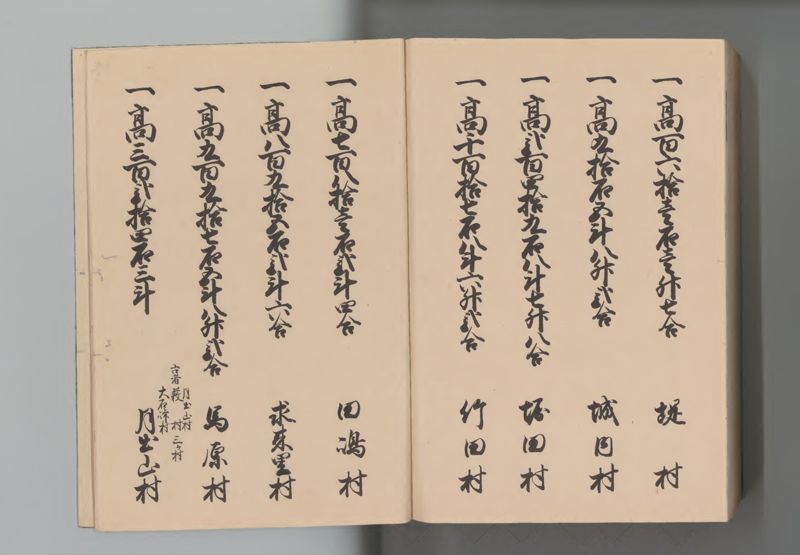 一高百六拾壱石壱升七合 堤村
一高九拾石五斗八升弐合 城内村
一高弐百四拾九石八斗七升八合 堀田村
一高千百拾七石八斗六升弐合 竹田村
一高七百八拾壱石弐斗四合 田嶋村
一高八百九拾五石弐斗六合 求来里村
一高五百九拾七石五斗八升弐合 馬原村
一高三百弐拾四石三斗 月出山村
古者 月出山村
殿村 三ヶ村
村